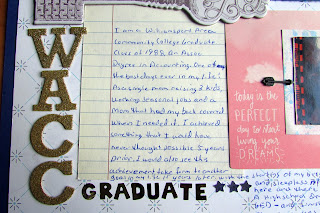 WACC
I am a Williamsport Area
Community College Graduate
Class of 1988. An Assoc
Degree in Accounting. One of
the best days ever in my life!
As a single mom raising 2 kids,
working seasonal jobs and a
Mom that had my back covered
when I needed it. I achieved
something that I would have
never thought possible 5 years
prior. I would also see this
achievement take form to another
later with the
GRADUATE
today is
the
PERFECT
day to start
living your
DREAMS.